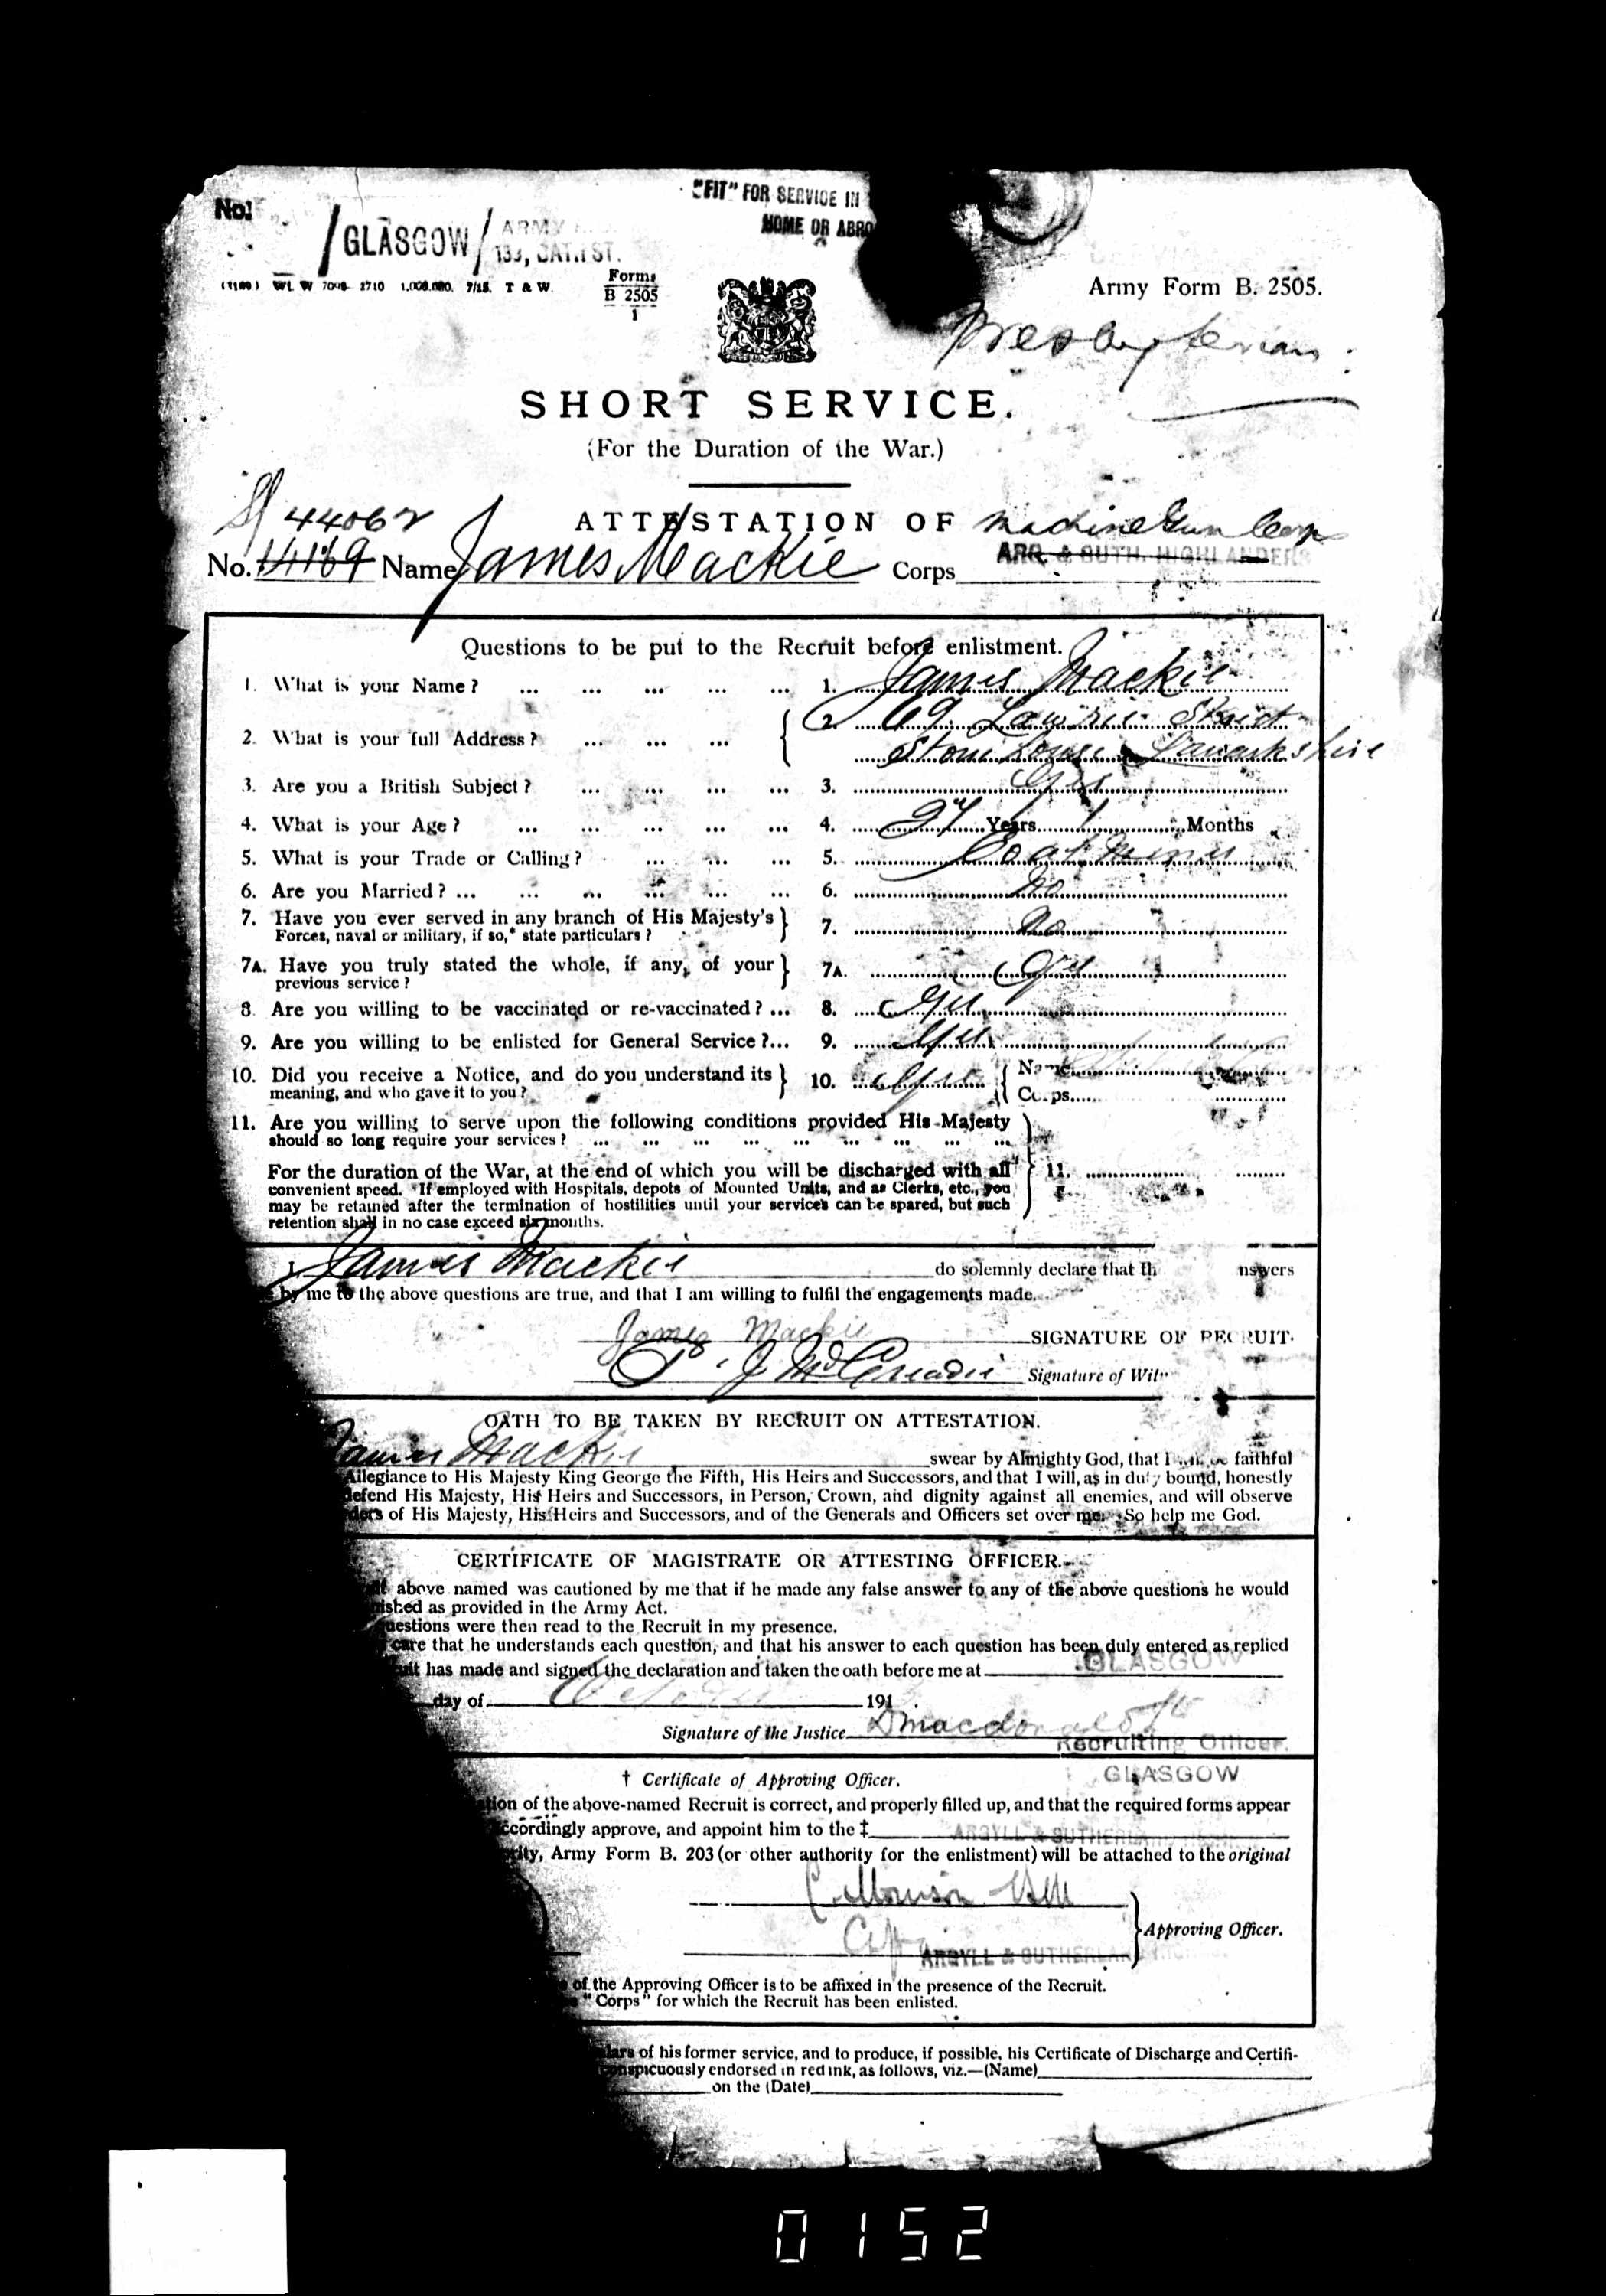 No.
GLASGOW ARMY
133, BATH ST.
"FIT" FOR SERVICE IN
HOME OR ABRO
(3189) Wt. W 7098 2710 1,000,000. 7/15. T & W.
Forms
B 2505
1
Army Form B. 2505.
Presbyterian.
SHORT SERVICE.
(For the Duration of the War.)
44062
ATTESTATION OF Machine Gun Corps
No. 14169 Name James Mackie Corps ARG. & SUTH. HIGHLANDERS
Questions to be put to the Recruit before enlistment.
1. What is your Name? ... ... ... ... ... 1. James Mackie
2. What is your full Address? ... ... ... 2. 69 Lawrie Street
Stonehouse Lanarkshire
3. Are you a British Subject? ... ... ... ... 3. Yes
4. What is your Age? ... ... ... ... ... 4. 27 Years 1 Months
5. What is your Trade or Calling? ... ... ... 5. Coal Miner
6. Are you Married? ... ... ... ... ... ... 6. No
7. Have you ever served in any branch of His Majesty's
Forces, naval or military, if so,* state particulars? } 7. No
7A. Have you truly stated the whole, if any, of your
previous service? } 7A. Yes
8. Are you willing to be vaccinated or re-vaccinated? ... 8. Yes
9. Are you willing to be enlisted for General Service?... 9. Yes
10. Did you receive a Notice, and do you understand its
meaning, and who gave it to you? } 10. Yes { Name
Corps
11. Are you willing to serve upon the following conditions provided His Majesty
should so long require your services? ... ... ... ... ... ... ... ... ...
For the duration of the War, at the end of which you will be discharged with all } 11.
convenient speed. If employed with Hospitals, depots of Mounted Units, and as Clerks, etc., you
may be retained after the termination of hostilities until your services can be spared, but such
retention shall in no case exceed six months.
I, James Mackie do solemnly declare that th nswers
by me to the above questions are true, and that I am willing to fulfil the engagements made.
James Mackie SIGNATURE OF RECRUIT.
J McCreadie Signature of Wit
OATH TO BE TAKEN BY RECRUIT ON ATTESTATION.
James Mackie swear by Almighty God, that I will be faithful
Allegiance to His Majesty King George the Fifth, His Heirs and Successors, and that I will, as in duty bound, honestly
defend His Majesty, His Heirs and Successors, in Person, Crown, and dignity against all enemies, and will observe
ders of His Majesty, His Heirs and Successors, and of the Generals and Officers set over me. So help me God.
CERTIFICATE OF MAGISTRATE OR ATTESTING OFFICER.
above named was cautioned by me that if he made any false answer to any of the above questions he would
ished as provided in the Army Act.
questions were then read to the Recruit in my presence.
care that he understands each question, and that his answer to each question has been duly entered as replied
uit has made and signed the declaration and taken the oath before me at GLASGOW
day of October 191 .
Signature of the Justice D Macdonald
Recruiting Officer.
GLASGOW
† Certificate of Approving Officer.
ation of the above-named Recruit is correct, and properly filled up, and that the required forms appear
ccordingly approve, and appoint him to the ‡ ARGYLL & SUTHERLAND
ority, Army Form B. 203 (or other authority for the enlistment) will be attached to the original
} Approving Officer.
ARGYLL & SUTHERLAND
of the Approving Officer is to be affixed in the presence of the Recruit.
"Corps" for which the Recruit has been enlisted.
lars of his former service, and to produce, if possible, his Certificate of Discharge and Certifi-
onspicuously endorsed in red ink, as follows, viz.—(Name)
on the (Date)
0152